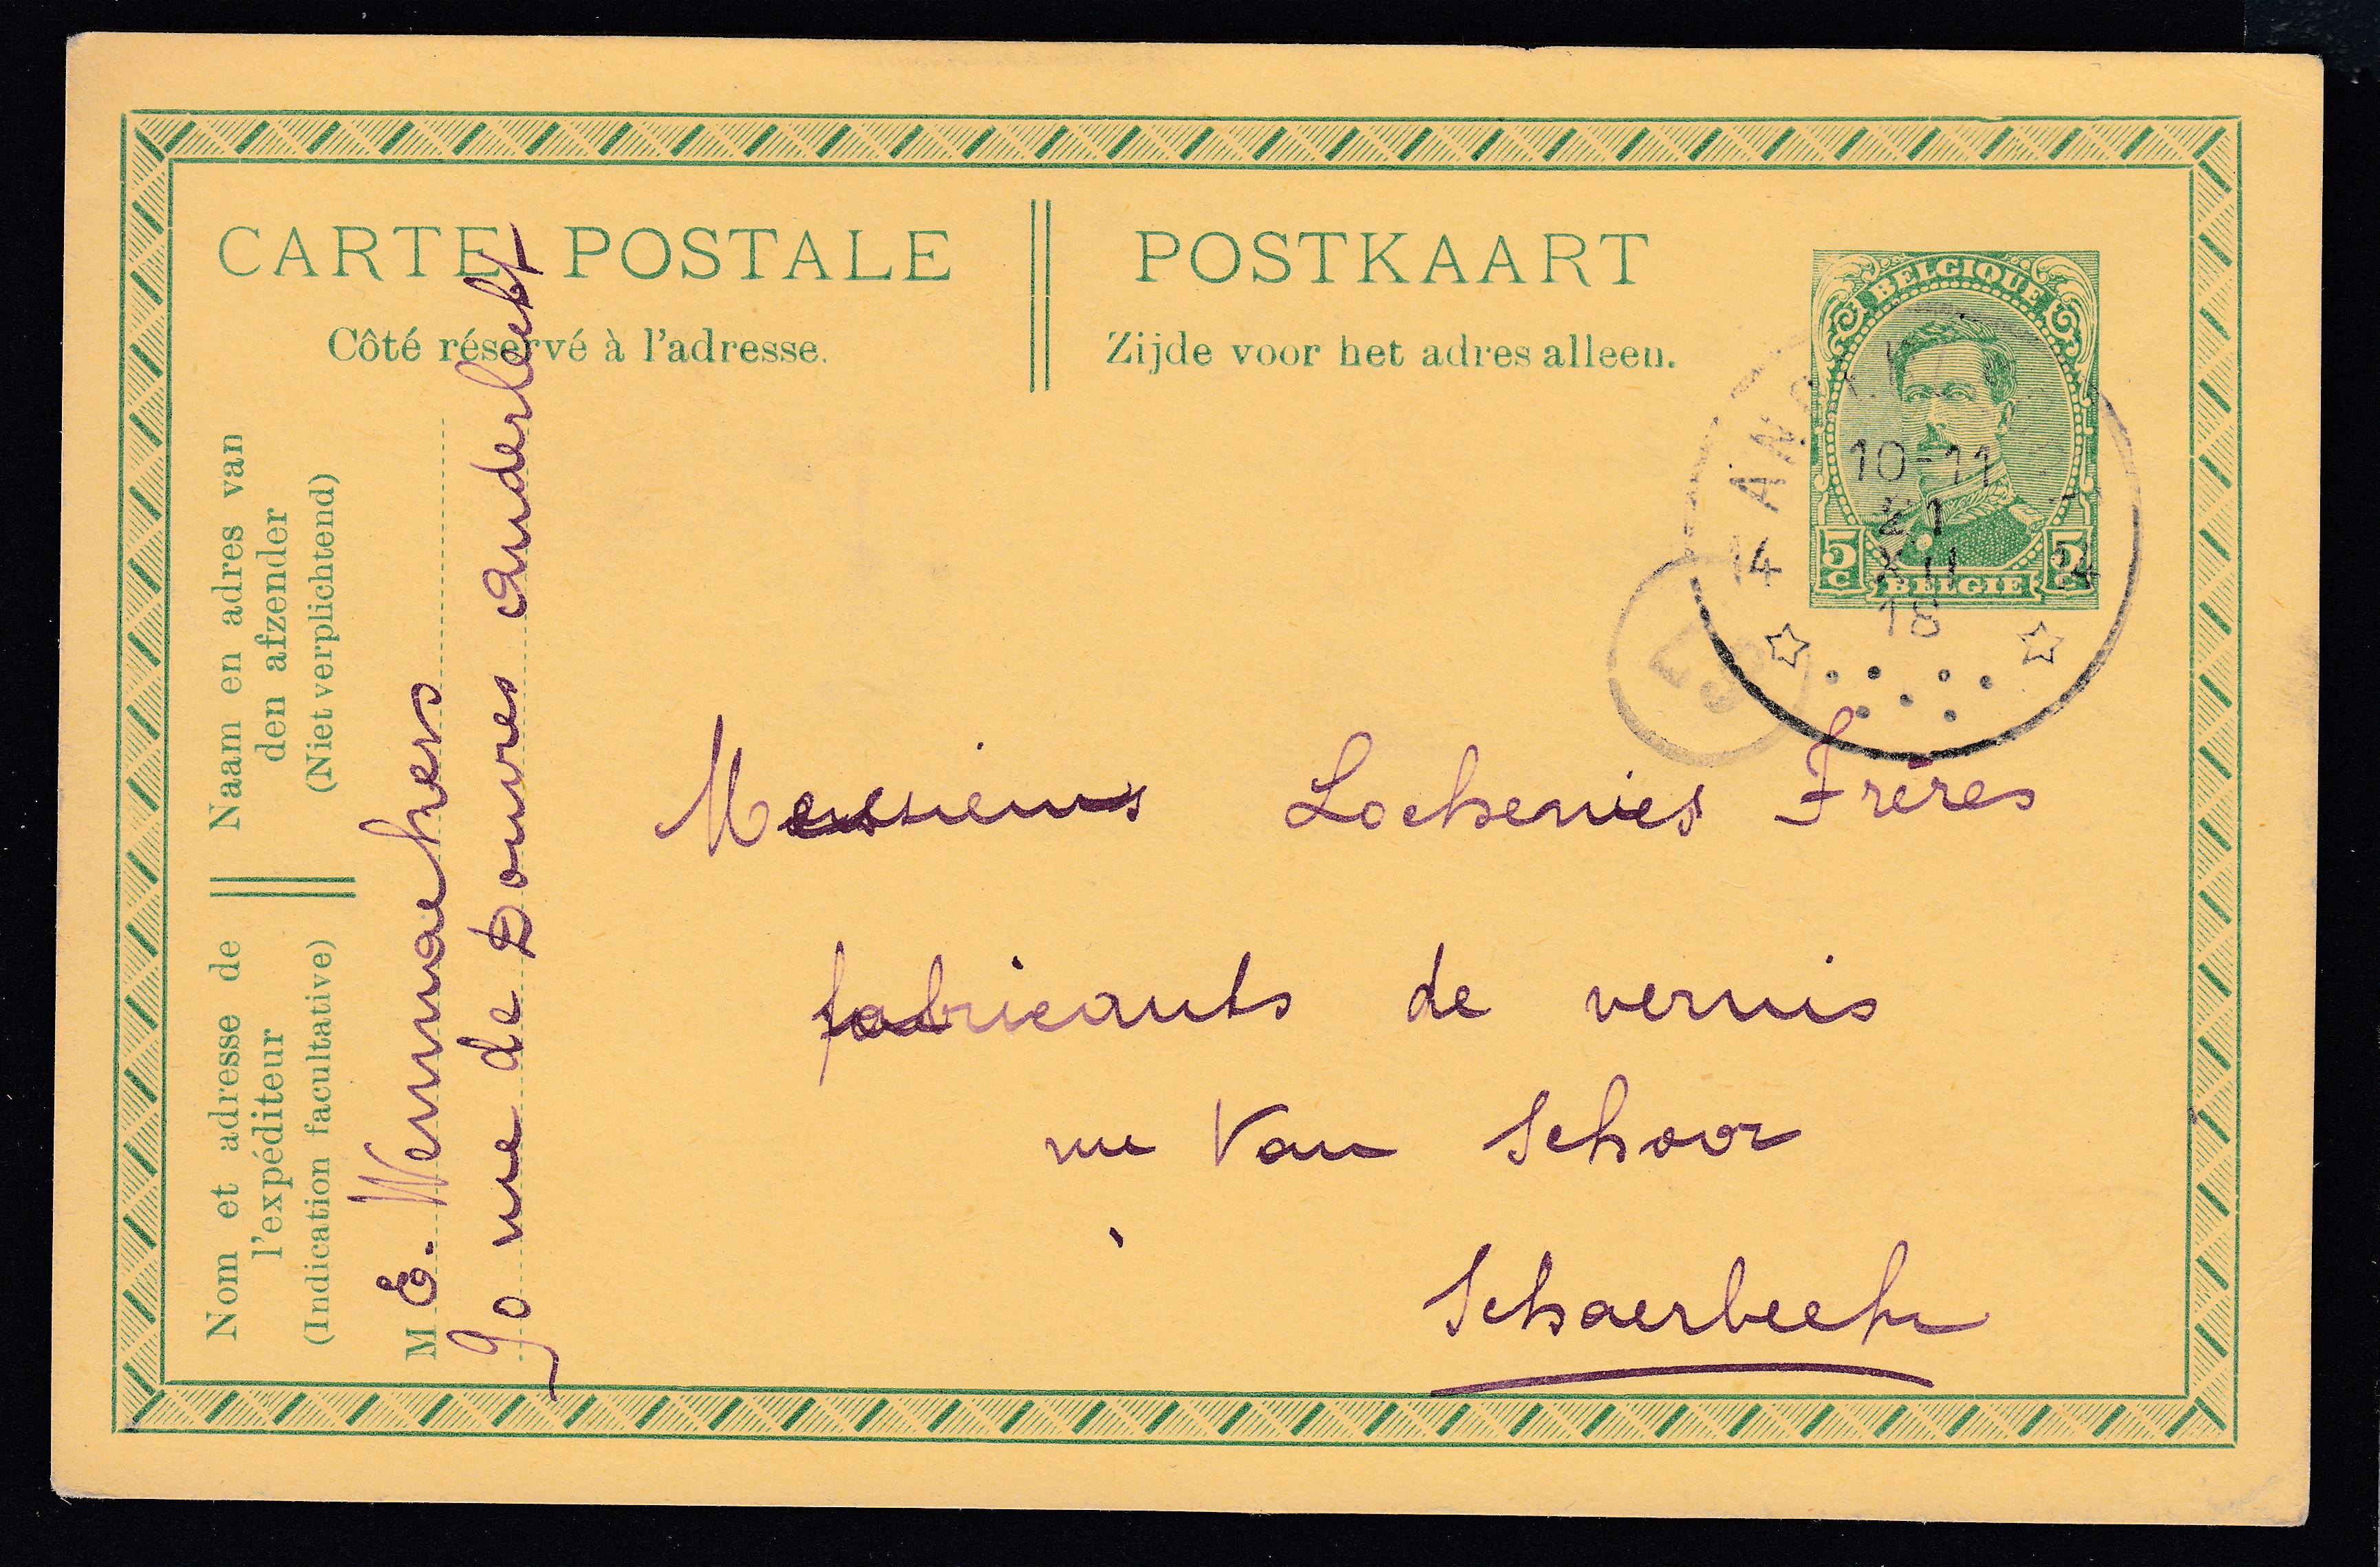 CARTE POSTALE
Côté réservé à l'adresse.
POSTKAART
Zijde voor het adres alleen.
BELGIQUE
5 C
BELGIE
5 C
10-11
21
XII
18
14
14
Naam en adres van
den afzender
(Niet verplichtend)
Nom et adresse de
l'expéditeur
(Indication facultative)
M E. Wennmaekers
90 rue de Douvres Anderlecht
Messieurs Lochenies Frères
fabricants de vernis
rue Van Schoor
Schaerbeek